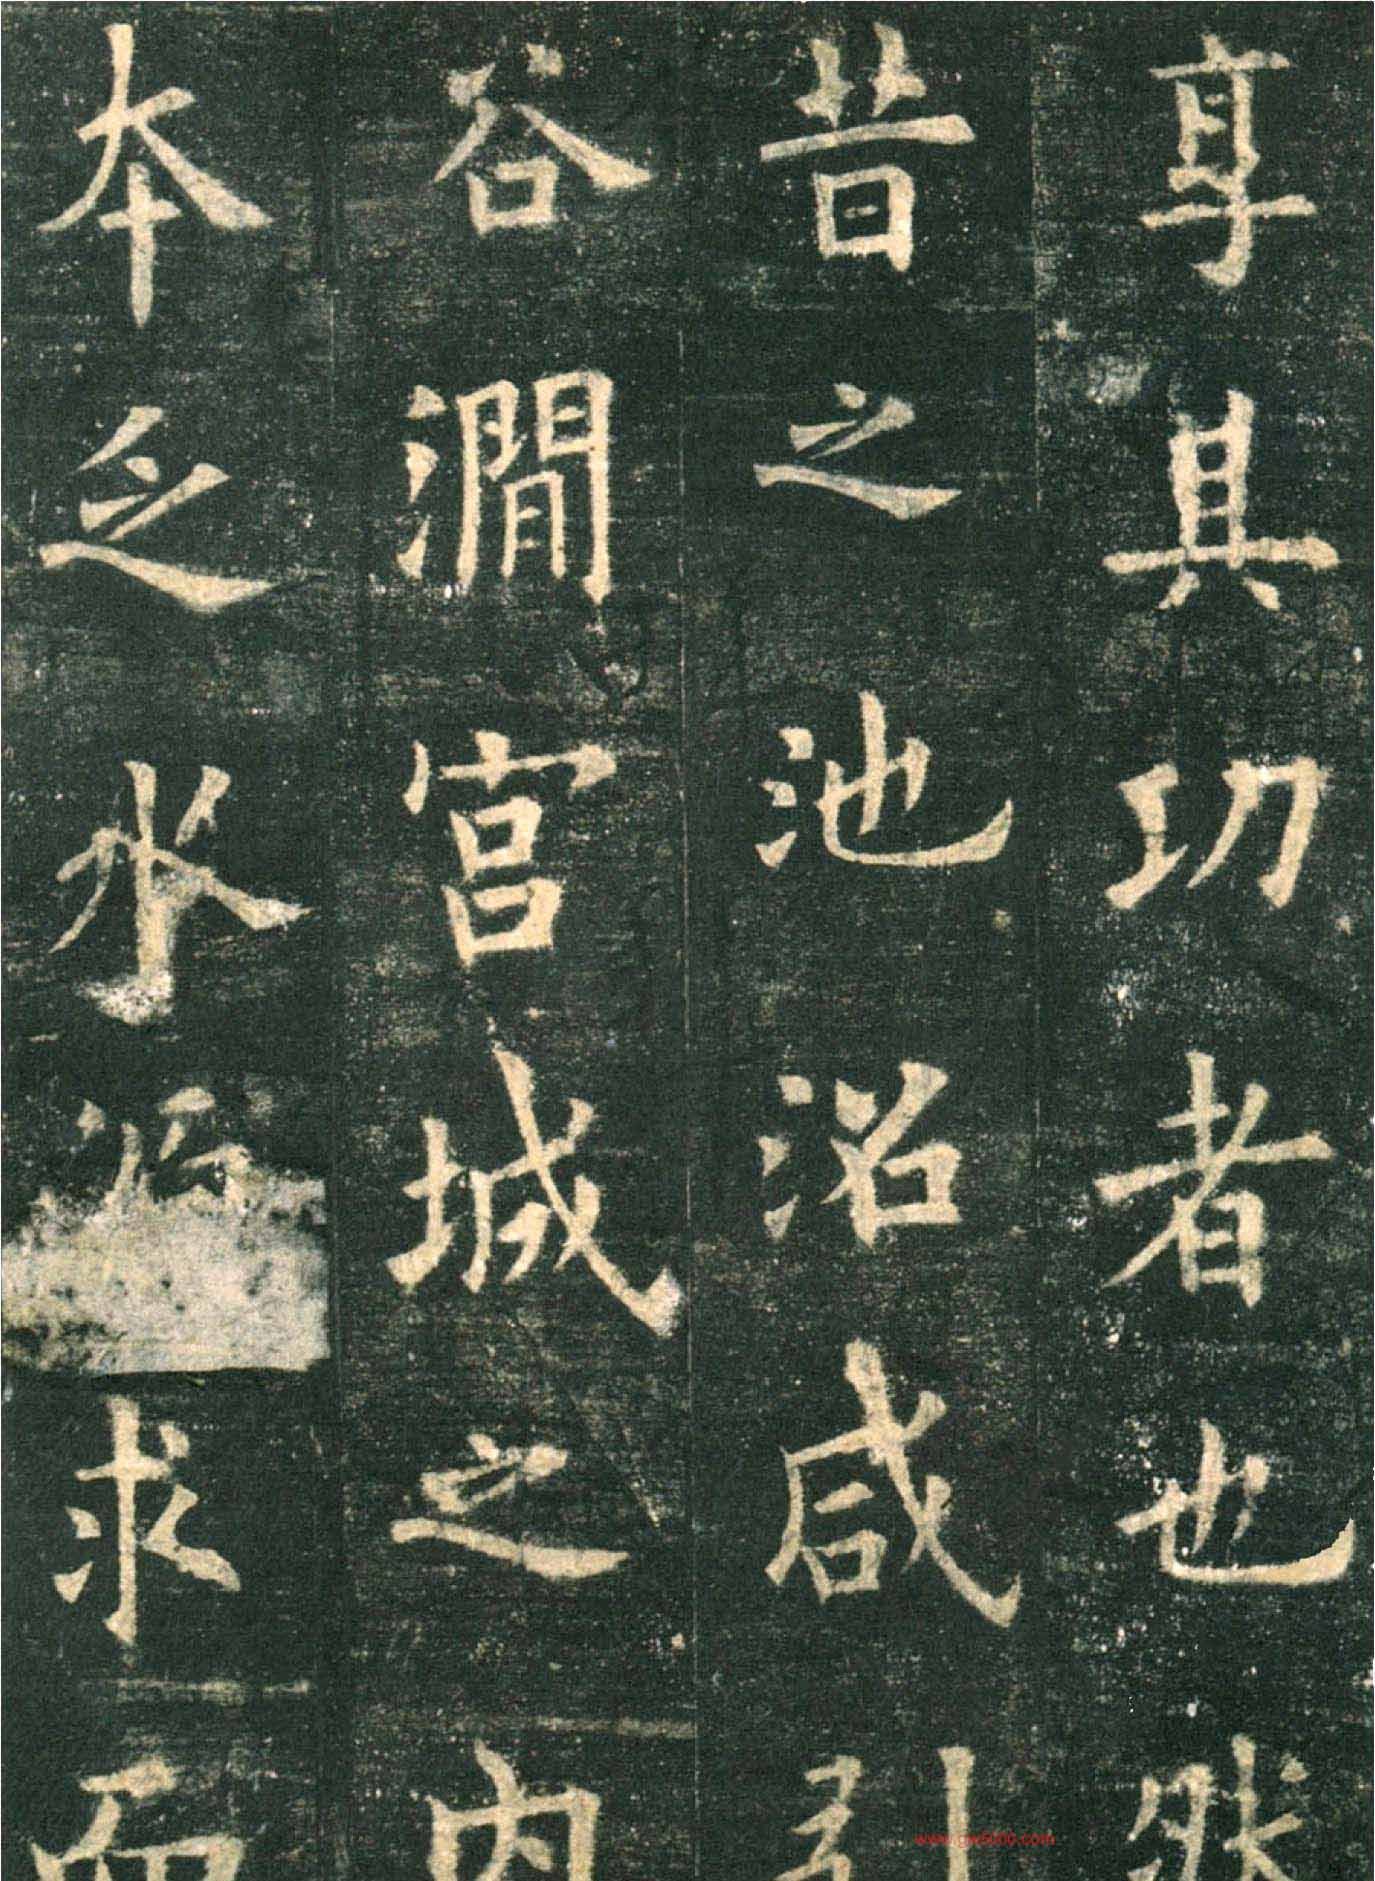 享其功者也然
昔之池沼咸引
谷澗宮城之内
本乏水 求而
www.gw5000.com